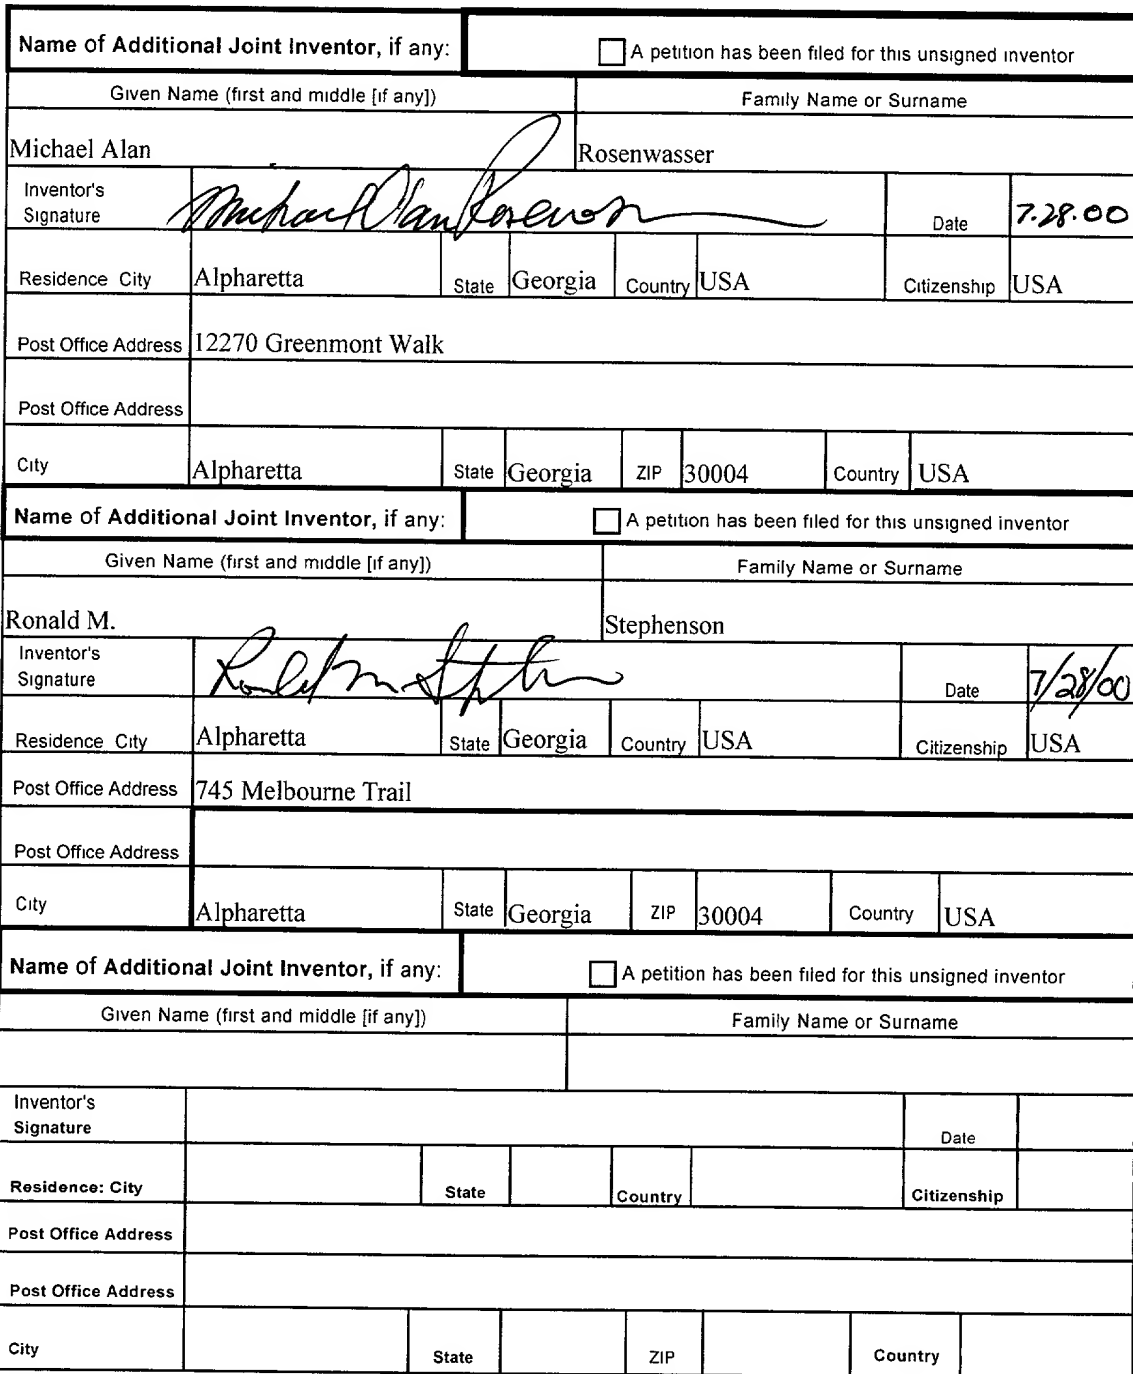 Name of Additional Joint Inventor, if any: A petition has been filed for this unsigned inventor
Given Name (first and middle [if any]) Family Name or Surname
Michael Alan Rosenwasser
Inventor's
Signature Michael Alan Rosenwasser Date 7.28.00
Residence City Alpharetta State Georgia Country USA Citizenship USA
Post Office Address 12270 Greenmont Walk
Post Office Address
City Alpharetta State Georgia ZIP 30004 Country USA
Name of Additional Joint Inventor, if any: A petition has been filed for this unsigned inventor
Given Name (first and middle [if any]) Family Name or Surname
Ronald M. Stephenson
Inventor's
Signature Ronald M Stephenson Date 7/28/00
Residence City Alpharetta State Georgia Country USA Citizenship USA
Post Office Address 745 Melbourne Trail
Post Office Address
City Alpharetta State Georgia ZIP 30004 Country USA
Name of Additional Joint Inventor, if any: A petition has been filed for this unsigned inventor
Given Name (first and middle [if any]) Family Name or Surname
Inventor's
Signature Date
Residence: City State Country Citizenship
Post Office Address
Post Office Address
City State ZIP Country